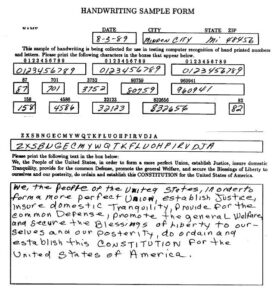 HANDWRITING SAMPLE FORM
DATE CITY STATE ZIP
8-3-89 MINDEN CITY Mi 48456
This sample of handwriting is being collected for use in testing computer recognition of hand printed numbers
and letters. Please print the following characters in the boxes that appear below.
0123456789 0123456789 0123456789
0123456789 0123456789 0123456789
87 701 3752 80759 960941
87 701 3752 80759 960941
158 4586 32123 832656 82
158 4586 32133 832656 82
ZXSBNGECMYWQTKFLUOHPIRVDJA
ZXSBNGECMYWQTKFLUOHPIRVDJA
Please print the following text in the box below:
We, the People of the United States, in order to form a more perfect Union, establish Justice, insure domestic
Tranquility, provide for the common Defense, promote the general Welfare, and secure the Blessings of Liberty to
ourselves and our posterity, do ordain and establish this CONSTITUTION for the United States of America.
We, the people of the United States, in order to
form a more perfect Union, establish Justice,
insure domestic Tranquility, provide for the
common Defense, promote the general Welfare,
and secure the Blessings of Liberty to our-
selves and our posterity, do ordain and
establish this CONSTITUTION for the
United States of America.